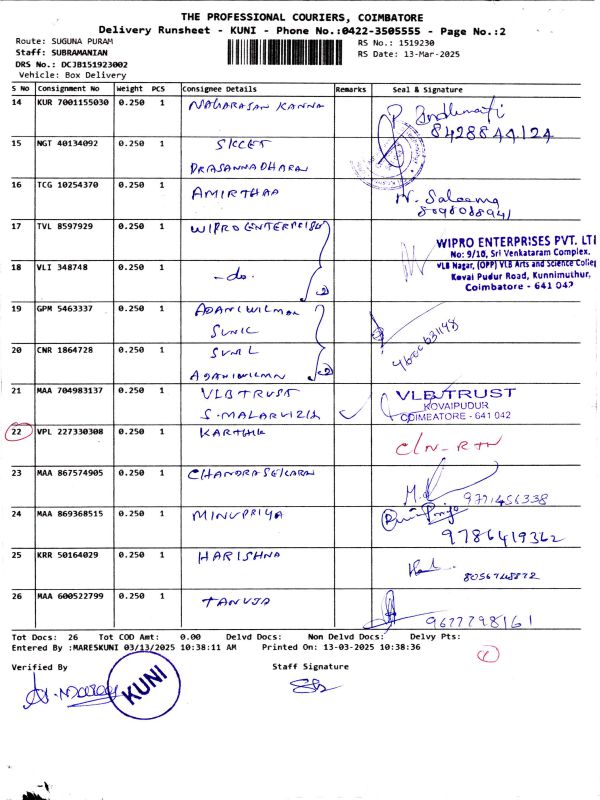 THE PROFESSIONAL COURIERS, COIMBATORE
Delivery Runsheet - KUNI - Phone No.:0422-3505555 - Page No.:2
Route: SUGUNA PURAM
RS No.: 1519230
Staff: SUBRAMANIAN
RS Date: 13-Mar-2025
DRS No.: DCJB151923002
Vehicle: Box Delivery
S No Consignment No Weight PCS Consignee Details Remarks Seal & Signature
14 KUR 7001155030 0.250 1 NAGARASAN KANNA
8428844124
15 NGT 40134092 0.250 1 SKCET
PRASANNADHARAN
16 TCG 10254370 0.250 1 AMIRTHAA
8098088941
17 TVL 8597929 0.250 1 WIPRO ENTERPRISES
WIPRO ENTERPRISES PVT. LT
No: 9/10, Sri Venkataram Complex,
VLB Nagar, (OPP) VLB Arts and Science Colleg
Kovai Pudur Road, Kunnimuthur,
Coimbatore - 641 042
18 VLI 348748 0.250 1 -do-
19 GPM 5463337 0.250 1 ADANI WILMAR
SUNIL
20 CNR 1864728 0.250 1 SUNIL
ADANI WILMAR
21 MAA 704983137 0.250 1 VLB TRUST
S. MALARVIZHI
VLB TRUST
KOVAIPUDUR
COIMBATORE - 641 042
22 VPL 227330308 0.250 1 KARTHIK
C/N-RTN
23 MAA 867574905 0.250 1 CHANDRASEKARAN
9771456338
24 MAA 869368515 0.250 1 MINUPRIYA
9786419362
25 KRR 50164029 0.250 1 HARISHNA
26 MAA 600522799 0.250 1 TANUJA
9677798161
Tot Docs: 26 Tot COD Amt: 0.00 Delvd Docs: Non Delvd Docs: Delvy Pts:
Entered By :MARESKUNI 03/13/2025 10:38:11 AM Printed On: 13-03-2025 10:38:36
Verified By Staff Signature
KUNI